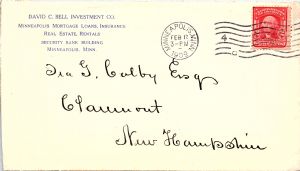 DAVID C. BELL INVESTMENT CO.
MINNEAPOLIS MORTGAGE LOANS, INSURANCE
REAL ESTATE, RENTALS
SECURITY BANK BUILDING
MINNEAPOLIS, MINN.
MINNEAPOLIS, MINN.
FEB 17
3-PM
4
C
Ira G. Colby Esq
Claremont
New Hampshire